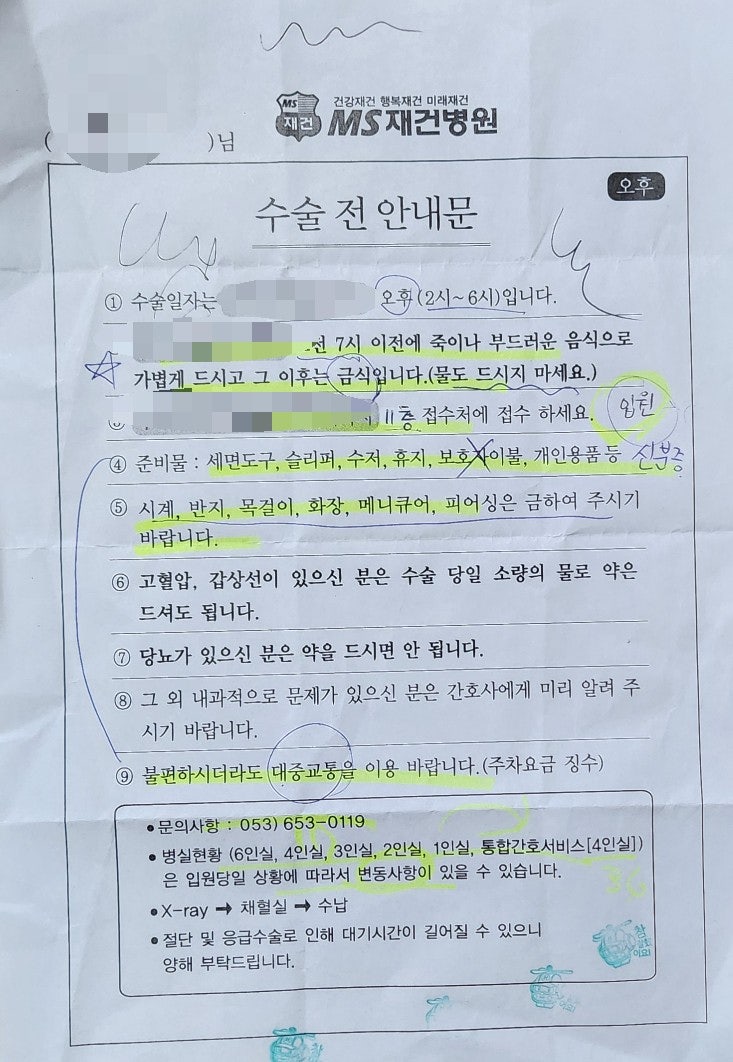 건강재건 행복재건 미래재건
MS 재건 MS 재건병원
( )님
오후
수술 전 안내문
① 수술일자는 오후(2시~6시)입니다.
전 7시 이전에 죽이나 부드러운 음식으로
가볍게 드시고 그 이후는 금식입니다.(물도 드시지 마세요.)
11층 접수처에 접수 하세요. 입원
④ 준비물 : 세면도구, 슬리퍼, 수저, 휴지, 보호자이불, 개인용품등 신분증
⑤ 시계, 반지, 목걸이, 화장, 메니큐어, 피어싱은 금하여 주시기
바랍니다.
⑥ 고혈압, 갑상선이 있으신 분은 수술 당일 소량의 물로 약은
드셔도 됩니다.
⑦ 당뇨가 있으신 분은 약을 드시면 안 됩니다.
⑧ 그 외 내과적으로 문제가 있으신 분은 간호사에게 미리 알려 주
시기 바랍니다.
⑨ 불편하시더라도 대중교통을 이용 바랍니다.(주차요금 징수)
• 문의사항 : 053) 653-0119
• 병실현황 (6인실, 4인실, 3인실, 2인실, 1인실, 통합간호서비스[4인실])
은 입원당일 상황에 따라서 변동사항이 있을 수 있습니다.
• X-ray ➡ 채혈실 ➡ 수납
• 절단 및 응급수술로 인해 대기시간이 길어질 수 있으니
양해 부탁드립니다.